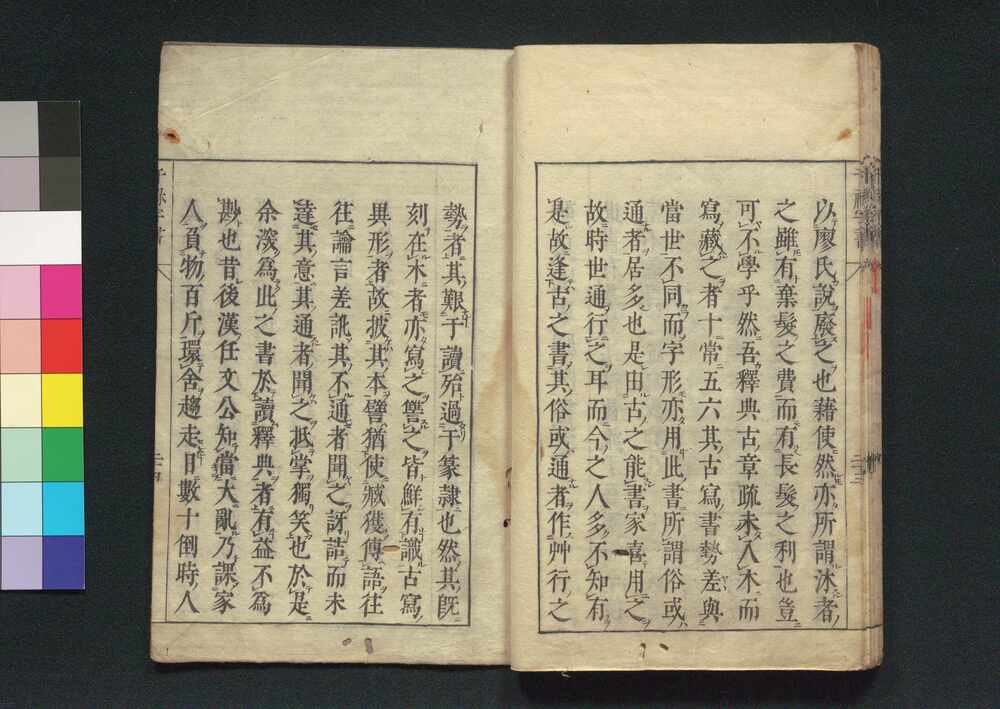 以廖氏說廢之也藉使然亦所謂沐者
之雖有棄髮之費而有長髮之利也豈
可不學乎然吾釋典古章疏未入木而
寫藏之者十常五六其古寫書勢差與
當世不同而字形亦用此書所謂俗或
通者居多也是由古之能書家喜用之
故時世通行之耳而今之人多不知有
是故逢古之書其俗或通者作艸行之
勢者其艱于讀殆過于篆隷也然其既
刻在木者亦寫之讐之皆鮮有識古寫
異形者故披其本譬猶使臧獲傳語往
往論言差訛其不通者聞之訝詰而未
達其意其通者聞之抵掌獨笑也於是
余深爲此之書於讀釋典者有益不爲
尠也昔後漢任文公知當大亂乃課家
人負物百斤環舍趨走日數十倒時人